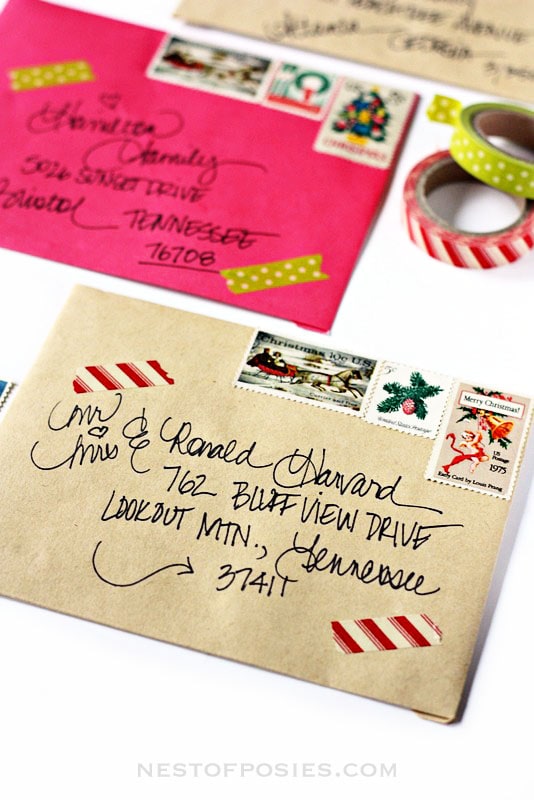 GEORGIA
CHRISTMAS
Hamilton
Family
5026 SUNSET DRIVE
Bristol TENNESSEE
76708
Christmas 10c U.S.
Currier and Ives
Merry Christmas!
US
Postage
1975
Early Card by Louis Prang
Mr &
Mrs Ronald Harvard
762 BLUFF VIEW DRIVE
LOOKOUT MTN., Tennessee
37411
NESTOFPOSIES.COM